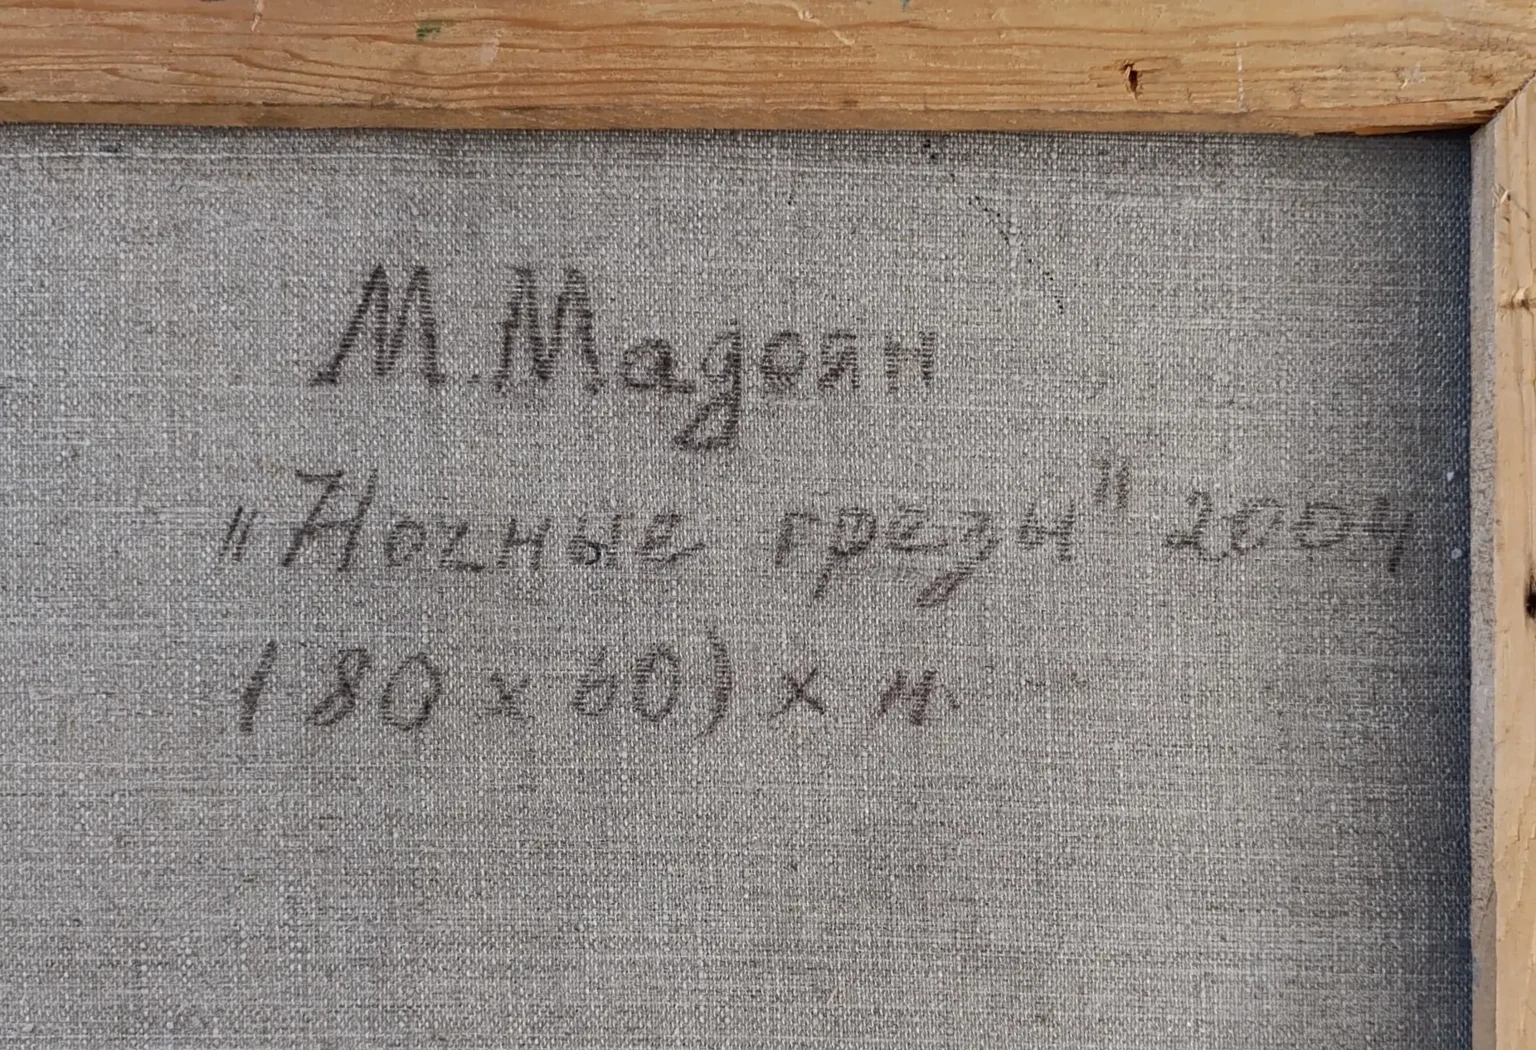 М. Мадоян
„Ночные грёзы" 2004
(80 х 60) х м.